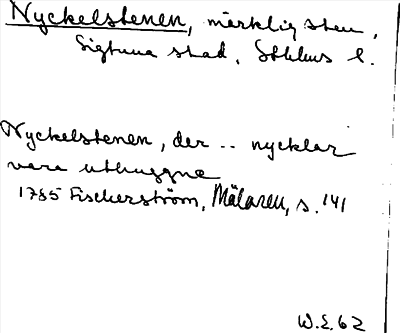 Nyckelstenen, märklig sten,
Sigtuna stad, Sthlms l.
Nyckelstenen, der .. nycklar
vara uthuggne
1785 Fischerström, Mälaren, s. 141
W.E. 62